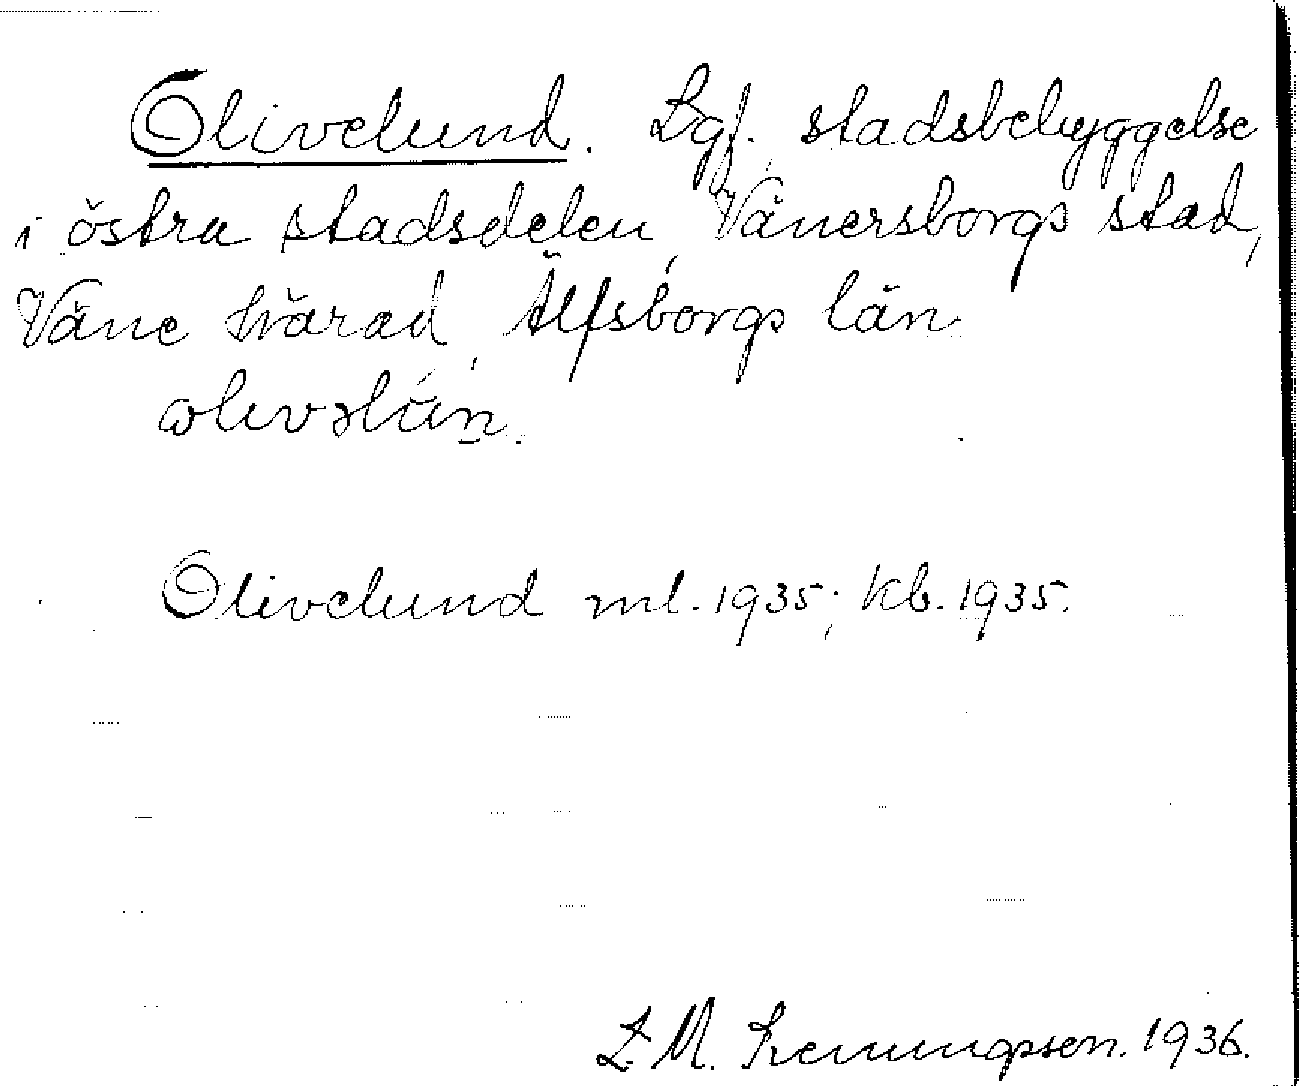 Olivelund. Lgf. stadsbebyggelse
i östra stadsdelen, Vänersborgs stad,
Väne härad, Älfsborgs län.
Olivelund ml. 1935; kb. 1935.
L. M. 1936.